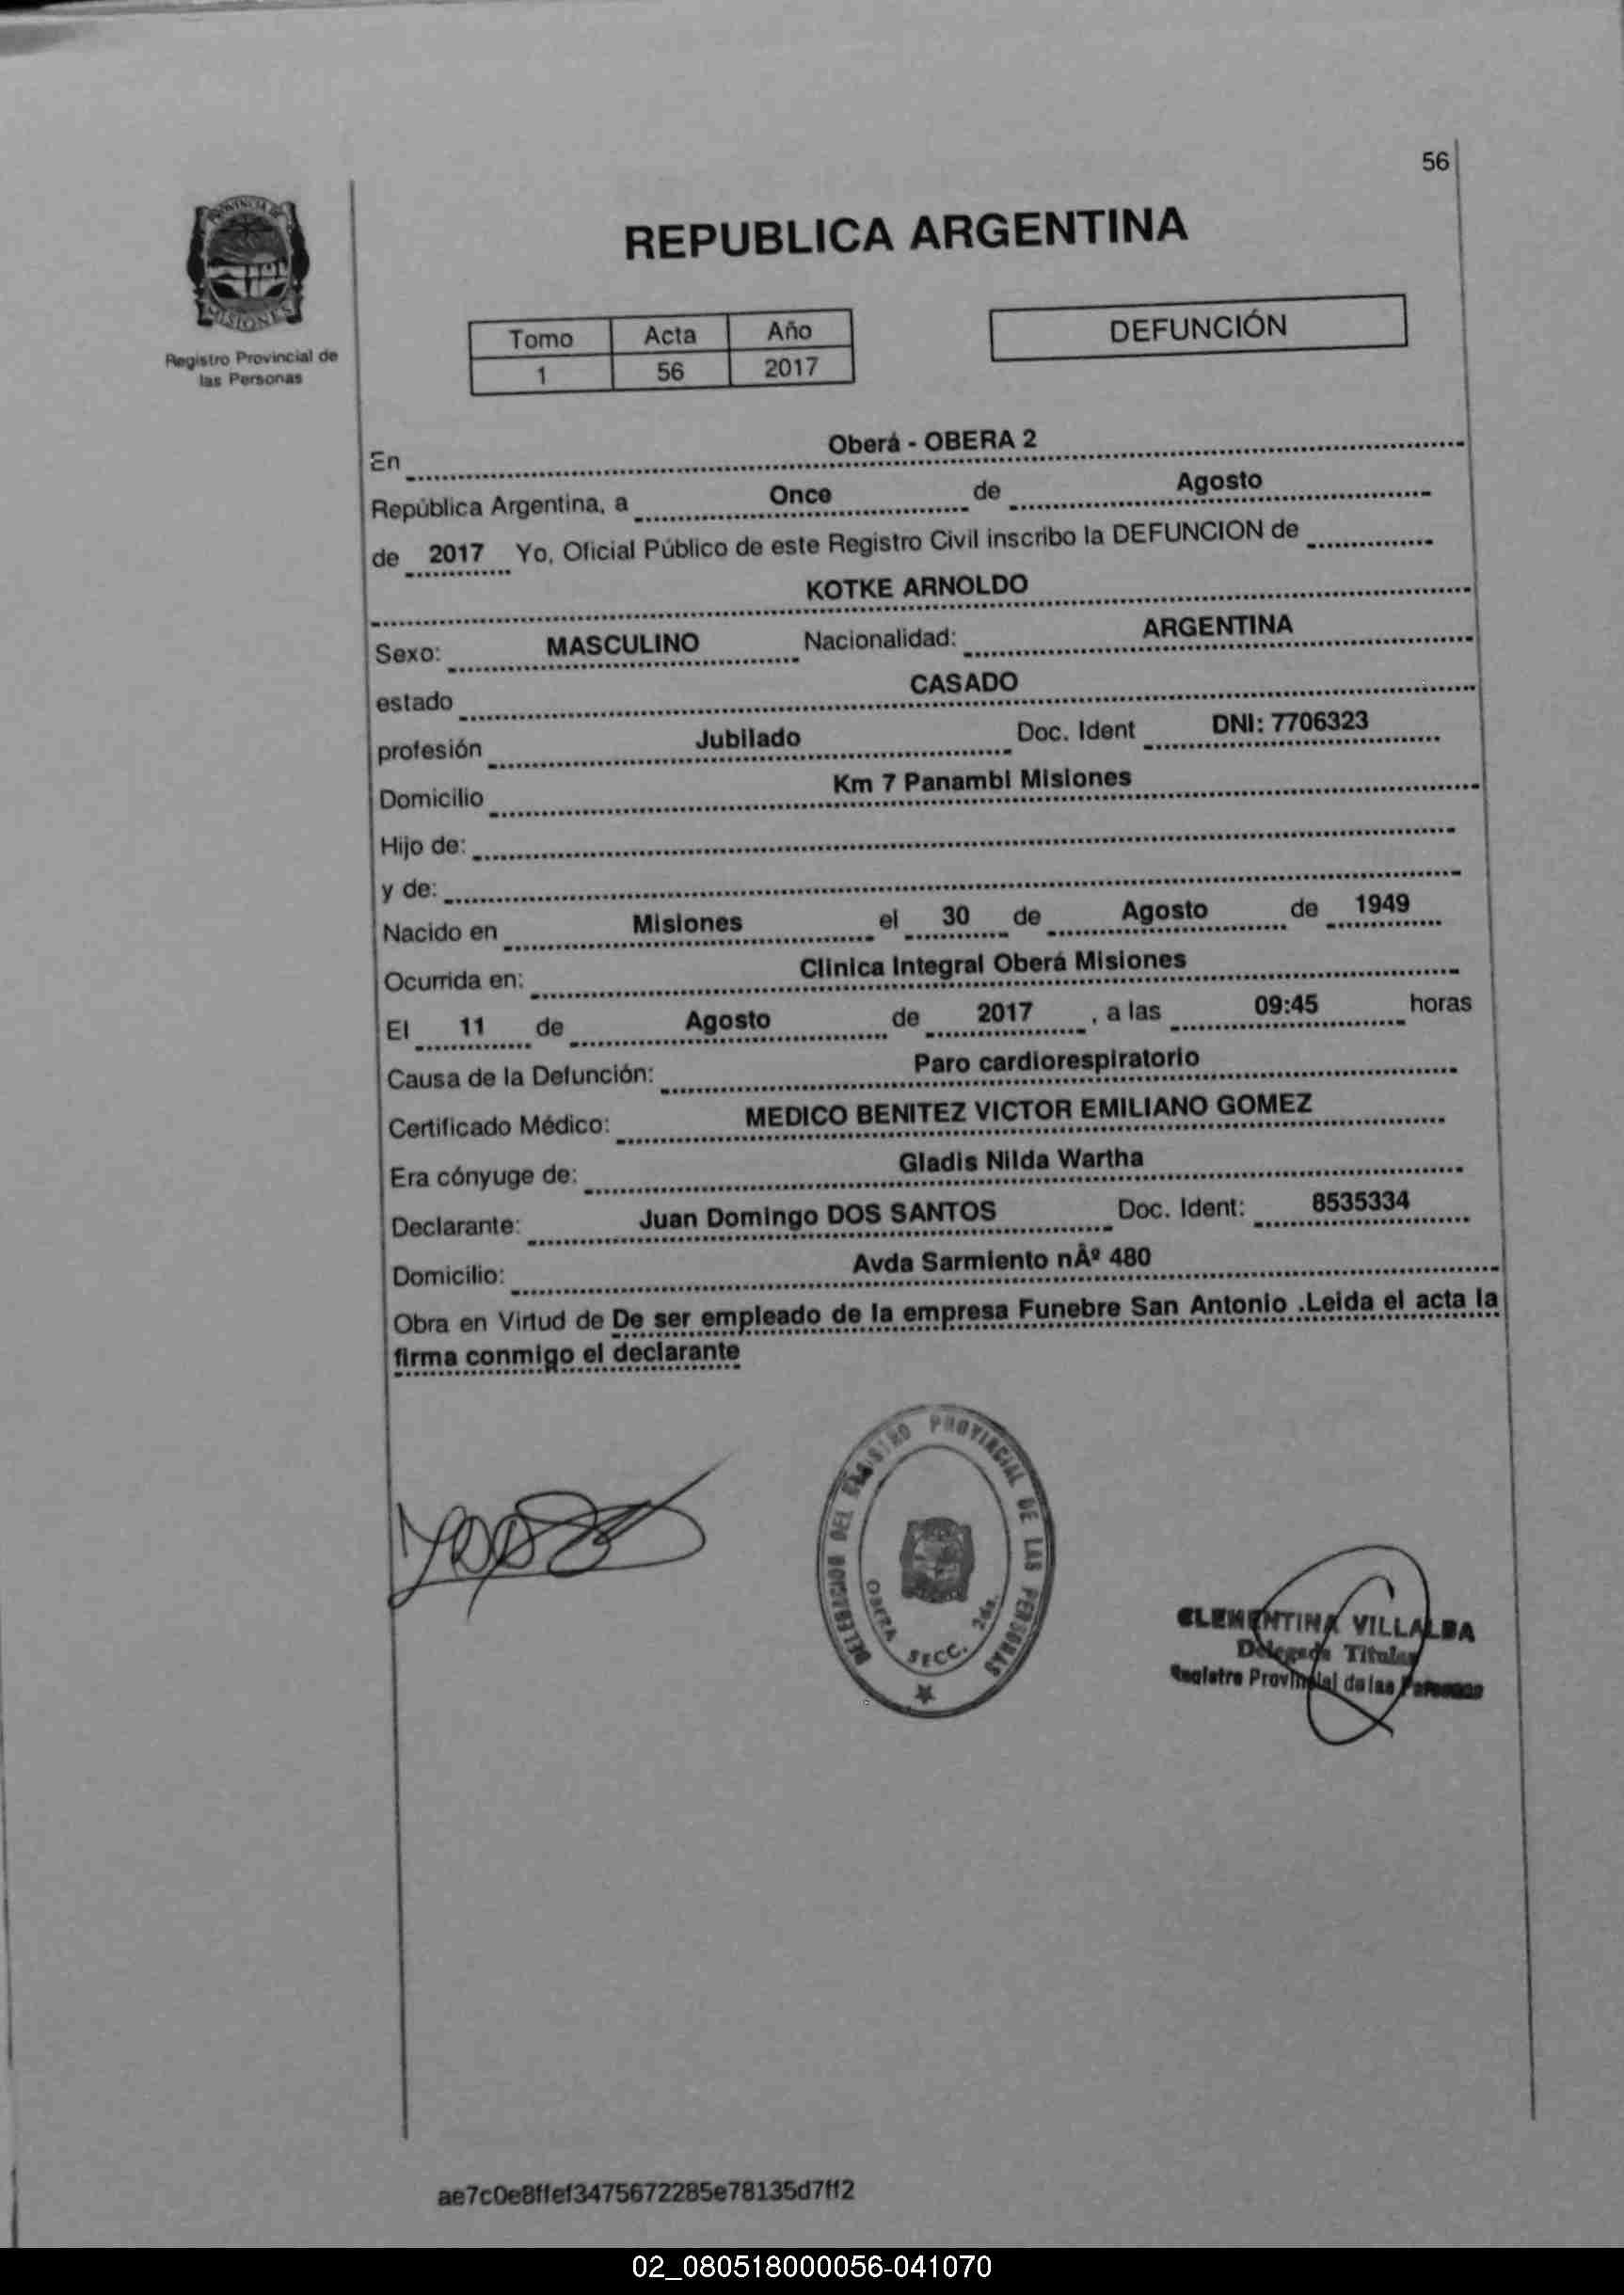 56
PROVINCIA DE
MISIONES
Registro Provincial de
las Personas
REPUBLICA ARGENTINA
Tomo Acta Año
1 56 2017
DEFUNCIÓN
En Oberá - OBERA 2
República Argentina, a Once de Agosto
de 2017 Yo, Oficial Público de este Registro Civil inscribo la DEFUNCION de
KOTKE ARNOLDO
Sexo: MASCULINO Nacionalidad: ARGENTINA
estado CASADO
profesión Jubilado Doc. Ident DNI: 7706323
Domicilio Km 7 Panambi Misiones
Hijo de:
y de:
Nacido en Misiones el 30 de Agosto de 1949
Ocurrida en: Clinica Integral Oberá Misiones
El 11 de Agosto de 2017 , a las 09:45 horas
Causa de la Defunción: Paro cardiorespiratorio
Certificado Médico: MEDICO BENITEZ VICTOR EMILIANO GOMEZ
Era cónyuge de: Gladis Nilda Wartha
Declarante: Juan Domingo DOS SANTOS Doc. Ident: 8535334
Domicilio: Avda Sarmiento nÂº 480
Obra en Virtud de De ser empleado de la empresa Funebre San Antonio .Leida el acta la
firma conmigo el declarante
DELEGACION DEL REGISTRO PROVINCIAL DE LAS PERSONAS
OBERA SECC. 2da.
CLEMENTINA VILLALBA
Delegada Titular
Registro Provincial de las Personas
ae7c0e8ffef3475672285e78135d7ff2
02_080518000056-041070